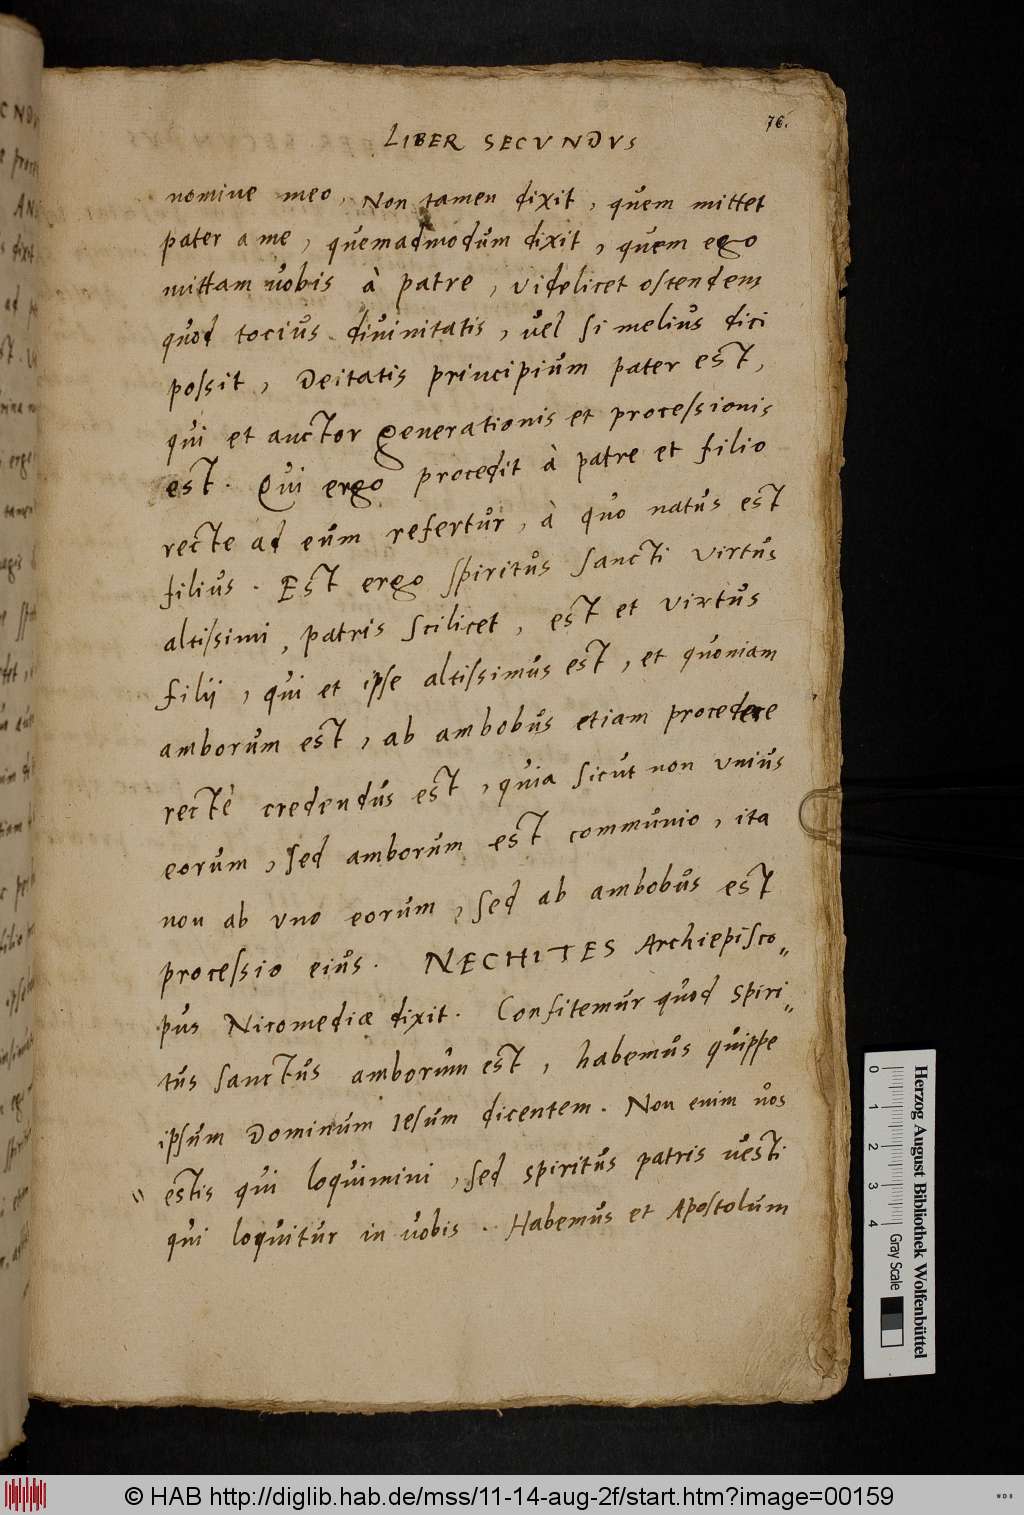 76.
LIBER SECUNDUS
nomine meo, Non tamen dixit, quem mittet
pater a me, quemadmodum dixit, quem ego
mittam vobis à patre, videlicet ostendens
quod tocius divinitatis, vel si melius dici
possit, Deitatis principium pater est,
qui et auctor generationis et processionis
est. Qui ergo procedit à patre et filio
recte ad eum refertur, à quo natus est
filius. Est ergo spiritus sancti virtus
altissimi, patris scilicet, est et virtus
filij, qui et ipse altissimus est, et quoniam
amborum est, ab ambobus etiam procedere
rectè credendus est, quia sicut non unius
eorum, sed amborum est communio, ita
non ab uno eorum, sed ab ambobus est
processio eius. NECHITES Archiepisco„
pus Nicomediæ dixit. Confitemur quod spiri„
tus sanctus amborum est, habemus quippe
ipsum Dominum Iesum dicentem. Non enim vos
„ estis qui loquimini, sed spiritus patris vesti
qui loquitur in vobis. Habemus et Apostolum
0 1 2 3 4
Gray Scale
Herzog August Bibliothek Wolfenbüttel
© HAB http://diglib.hab.de/mss/11-14-aug-2f/start.htm?image=00159